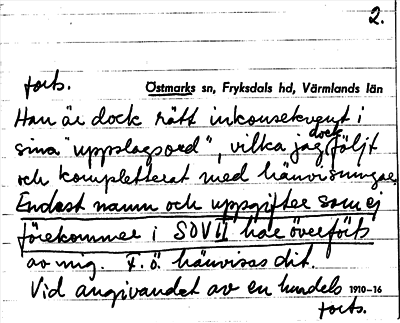 2.
forts.
Östmarks sn, Fryksdals hd, Värmlands län
Han är dock rätt inkonsekvent i
sina "uppslagsord", vilka jag dock följt
och kompletterat med hänvisningar.
Endast namn och uppgifter som ej
förekommer i SOV II har överförts
av mig. F.ö. hänvisas dit.
Vid angivandet av en hundels 1910-16
forts.